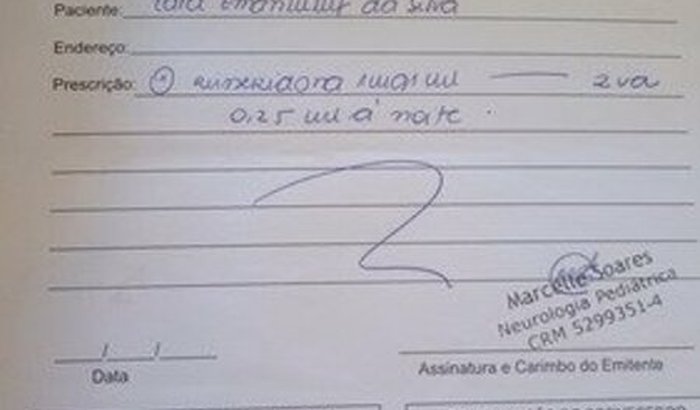 Paciente: da Silva
Endereço:
Prescrição: ① Risperidona 1mg/ml — 2 vd
0,25 ml à noite.
Marcelle Soares
Neurologia Pediátrica
CRM 5299351-4
Data
Assinatura e Carimbo do Emitente